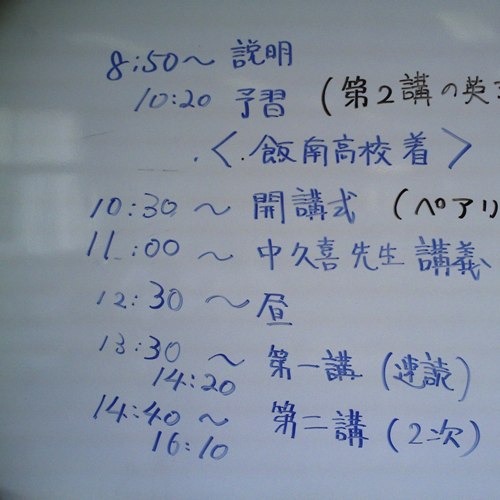 8:50〜 説明
10:20 予習 (第2講の英
<飯南高校着>
10:30 〜 開講式 (ペアリ
11:00 〜 中久喜先生 講義
12:30 〜 昼
13:30 〜
14:20 第一講 (速読)
14:40 〜
16:10 第二講 (2次)